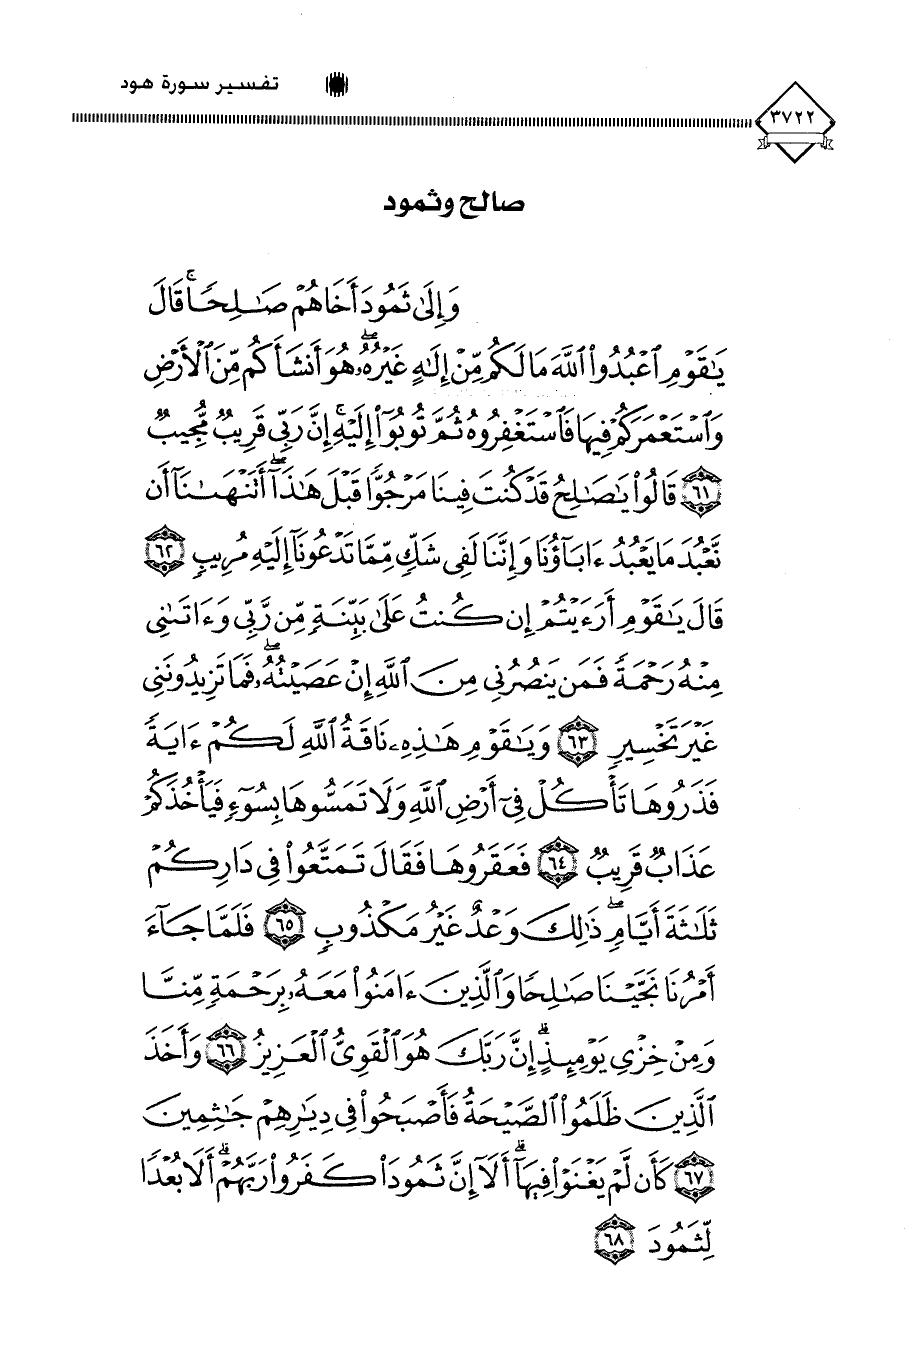 تفسير سورة هود
٣٧٢٢
صالح وثمود
وَإِلَىٰ ثَمُودَ أَخَاهُمْ صَـٰلِحًا ۚ قَالَ
يَـٰقَوْمِ ٱعْبُدُوا۟ ٱللَّهَ مَا لَكُم مِّنْ إِلَـٰهٍ غَيْرُهُۥ ۖ هُوَ أَنشَأَكُم مِّنَ ٱلْأَرْضِ
وَٱسْتَعْمَرَكُمْ فِيهَا فَٱسْتَغْفِرُوهُ ثُمَّ تُوبُوٓا۟ إِلَيْهِ ۚ إِنَّ رَبِّى قَرِيبٌ مُّجِيبٌ
٦١ قَالُوا۟ يَـٰصَـٰلِحُ قَدْ كُنتَ فِينَا مَرْجُوًّا قَبْلَ هَـٰذَآ ۖ أَتَنْهَىٰنَآ أَن
نَّعْبُدَ مَا يَعْبُدُ ءَابَآؤُنَا وَإِنَّنَا لَفِى شَكٍّ مِّمَّا تَدْعُونَآ إِلَيْهِ مُرِيبٍ ٦٢
قَالَ يَـٰقَوْمِ أَرَءَيْتُمْ إِن كُنتُ عَلَىٰ بَيِّنَةٍ مِّن رَّبِّى وَءَاتَىٰنِى
مِنْهُ رَحْمَةً فَمَن يَنصُرُنِى مِنَ ٱللَّهِ إِنْ عَصَيْتُهُۥ ۖ فَمَا تَزِيدُونَنِى
غَيْرَ تَخْسِيرٍ ٦٣ وَيَـٰقَوْمِ هَـٰذِهِۦ نَاقَةُ ٱللَّهِ لَكُمْ ءَايَةً
فَذَرُوهَا تَأْكُلْ فِىٓ أَرْضِ ٱللَّهِ وَلَا تَمَسُّوهَا بِسُوٓءٍ فَيَأْخُذَكُمْ
عَذَابٌ قَرِيبٌ ٦٤ فَعَقَرُوهَا فَقَالَ تَمَتَّعُوا۟ فِى دَارِكُمْ
ثَلَـٰثَةَ أَيَّامٍ ۖ ذَٰلِكَ وَعْدٌ غَيْرُ مَكْذُوبٍ ٦٥ فَلَمَّا جَآءَ
أَمْرُنَا نَجَّيْنَا صَـٰلِحًا وَٱلَّذِينَ ءَامَنُوا۟ مَعَهُۥ بِرَحْمَةٍ مِّنَّا
وَمِنْ خِزْىِ يَوْمِئِذٍ ۗ إِنَّ رَبَّكَ هُوَ ٱلْقَوِىُّ ٱلْعَزِيزُ ٦٦ وَأَخَذَ
ٱلَّذِينَ ظَلَمُوا۟ ٱلصَّيْحَةُ فَأَصْبَحُوا۟ فِى دِيَـٰرِهِمْ جَـٰثِمِينَ
٦٧ كَأَن لَّمْ يَغْنَوْا۟ فِيهَآ ۗ أَلَآ إِنَّ ثَمُودَا۟ كَفَرُوا۟ رَبَّهُمْ ۗ أَلَا بُعْدًا
لِّثَمُودَ ٦٨